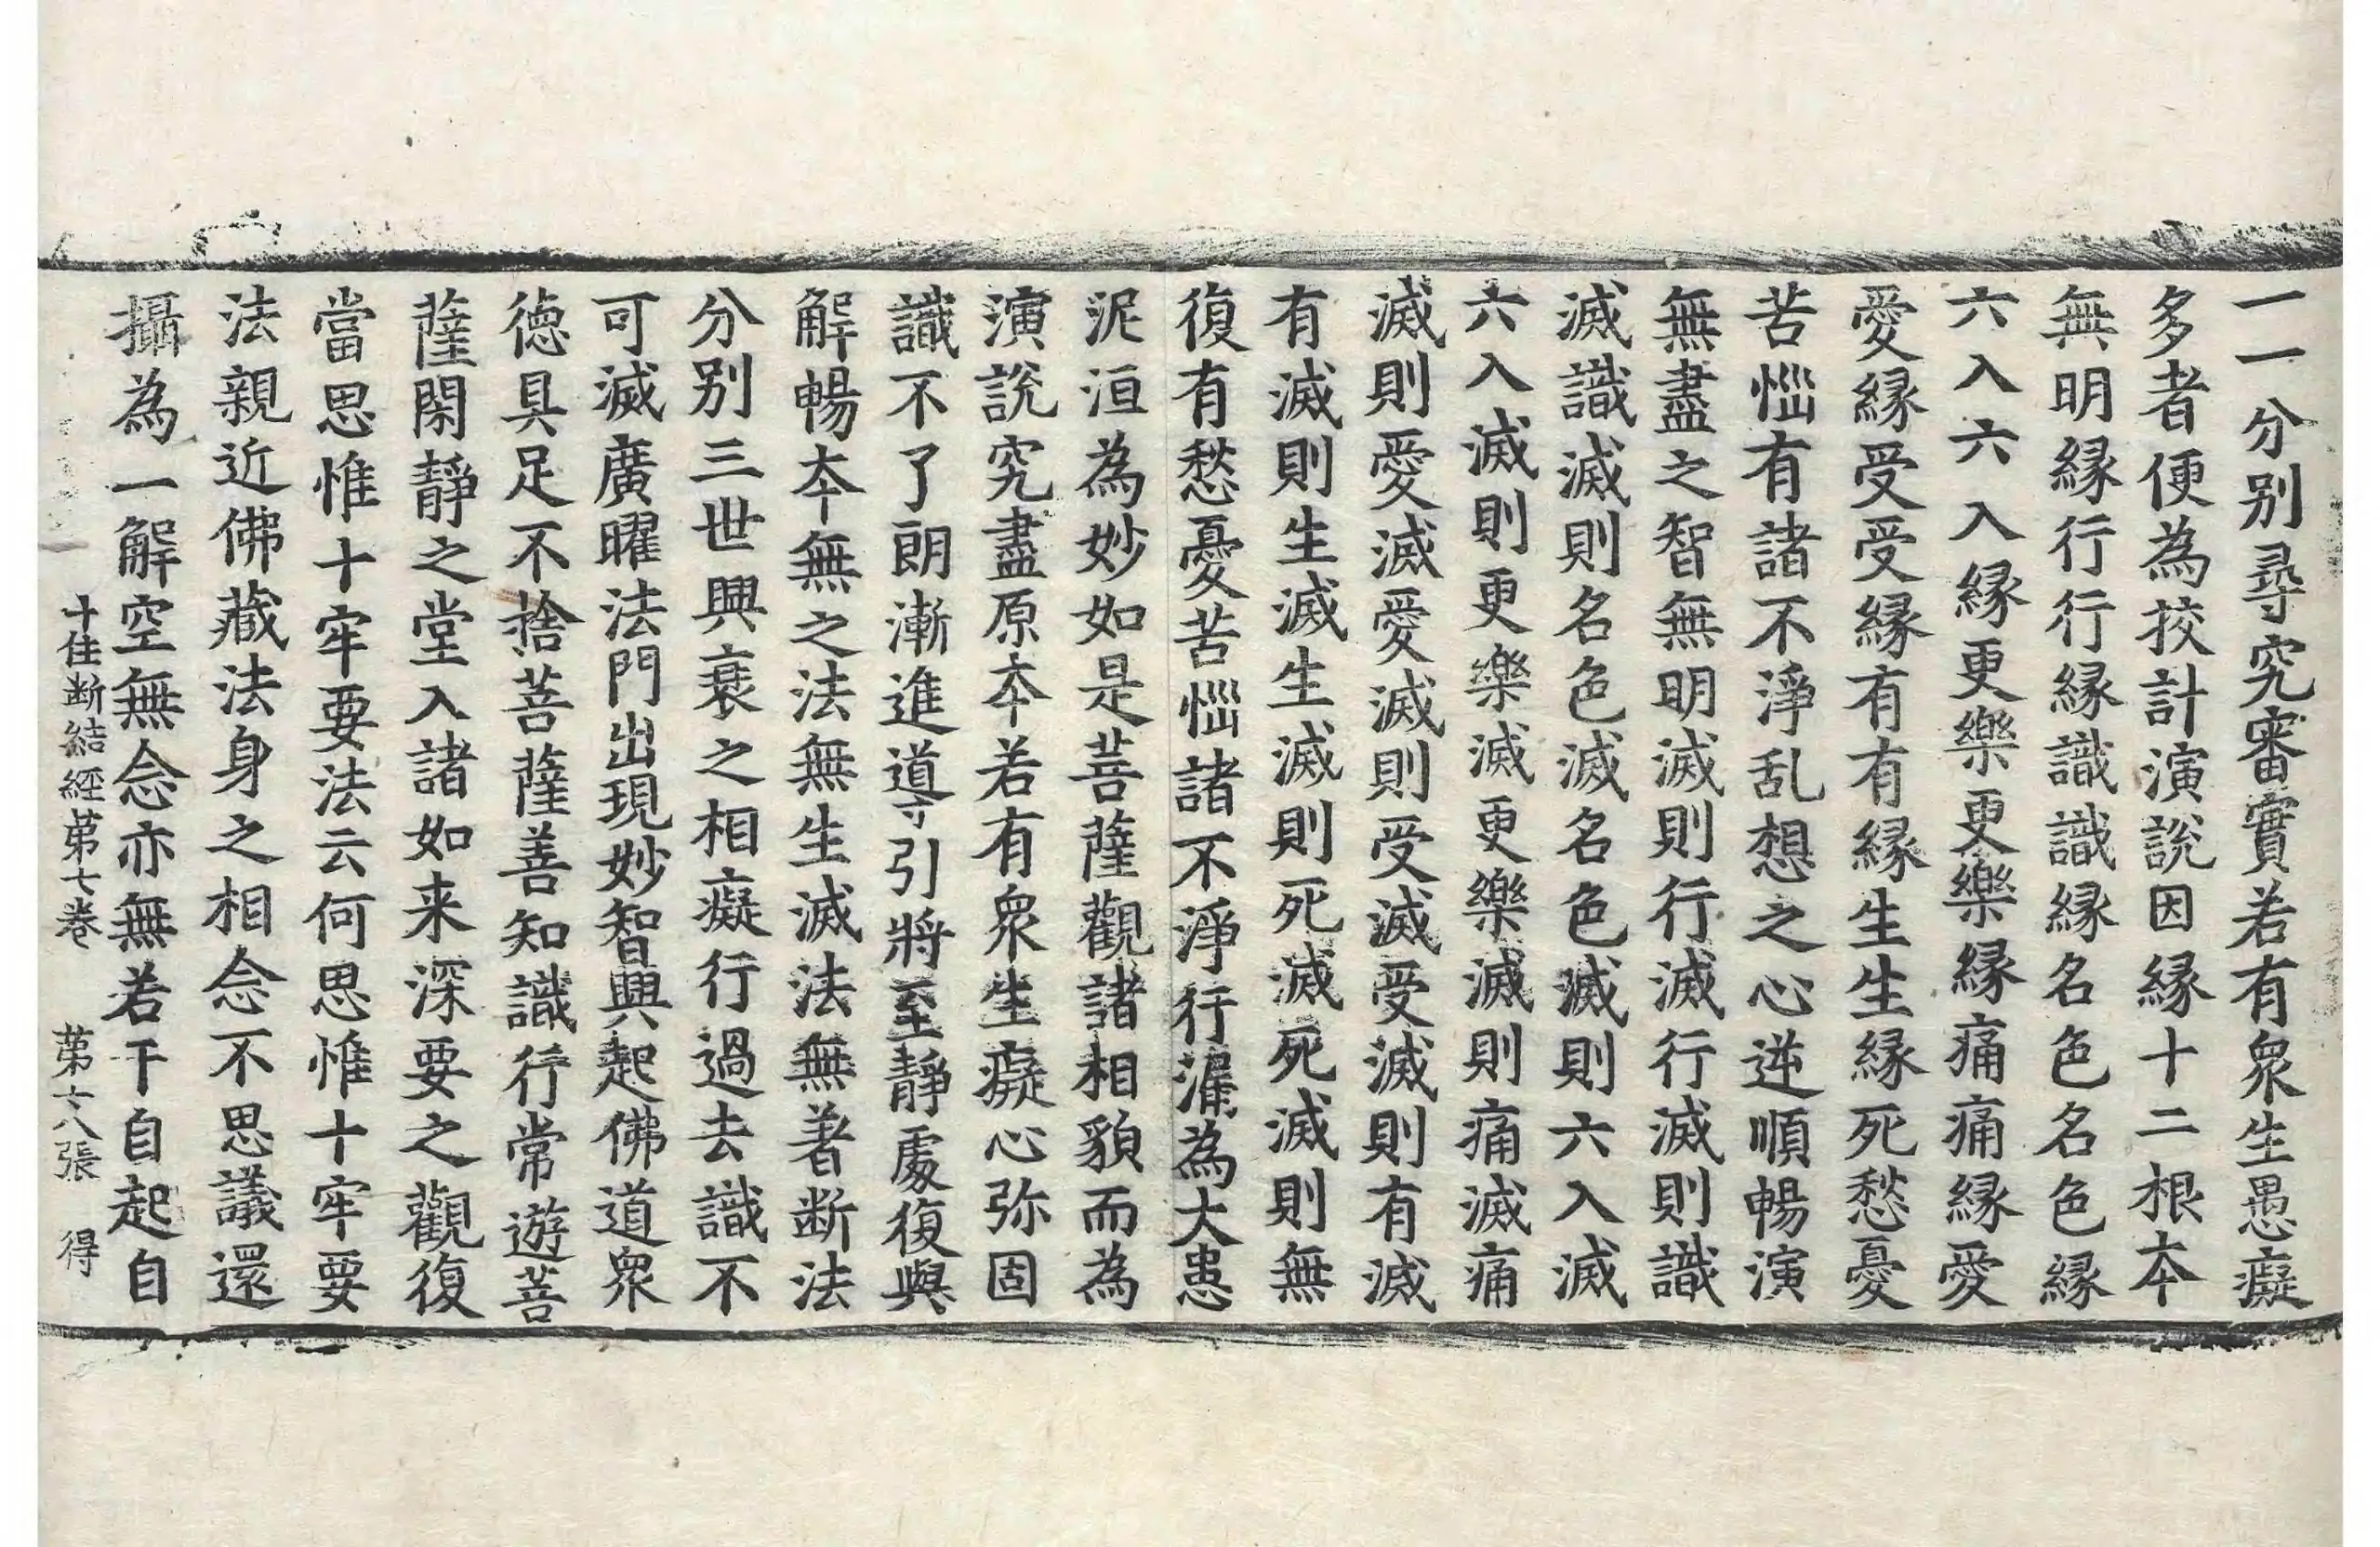 一一分别尋究審實若有衆生愚癡
多者便為挍計演說因縁十二根夲
無明縁行行縁識識縁名色名色縁
六入六入縁更樂更樂縁痛痛縁愛
愛縁受受縁有有縁生生縁死愁憂
苦惱有諸不淨乱想之心逆順暢演
無盡之智無明滅則行滅行滅則識
滅識滅則名色滅名色滅則六入滅
六入滅則更樂滅更樂滅則痛滅痛
滅則愛滅愛滅則受滅受滅則有滅
有滅則生滅生滅則死滅死滅則無
復有愁憂苦惱諸不淨行漏為大患
泥洹為妙如是菩薩觀諸相貌而為
演說究盡原夲若有衆生癡心弥固
識不了朗漸進導引將至靜處復與
解暢夲無之法無生滅法無著断法
分别三世興衰之相癡行過去識不
可滅廣曜法門出現妙智興起佛道衆
徳具足不捨菩薩善知識行常遊菩
薩閑靜之堂入諸如来深要之觀復
當思惟十牢要法云何思惟十牢要
法親近佛藏法身之相念不思議還
攝為一解空無念亦無若干自起自
十住断結經第七卷 第十八張 得